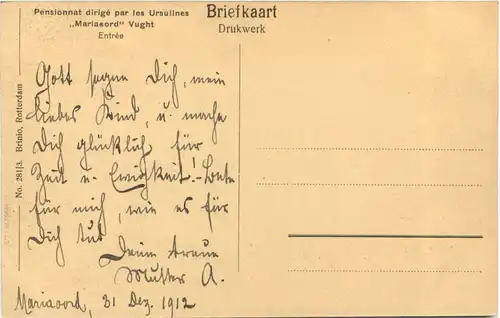 Pensionnat dirigé par les Ursulines
„Mariaoord" Vught
Entrée
Briefkaart
Drukwerk
No. 281|3. Brinio, Rotterdam
Gott segne Dich, mein
liebes Kind, u. mache
Dich glücklich für
Zeit u. Ewigkeit! - Bete
für mich, wie es für
Dich tut
Deine treue
Mutter A.
Mariaoord, 31 Dez. 1912